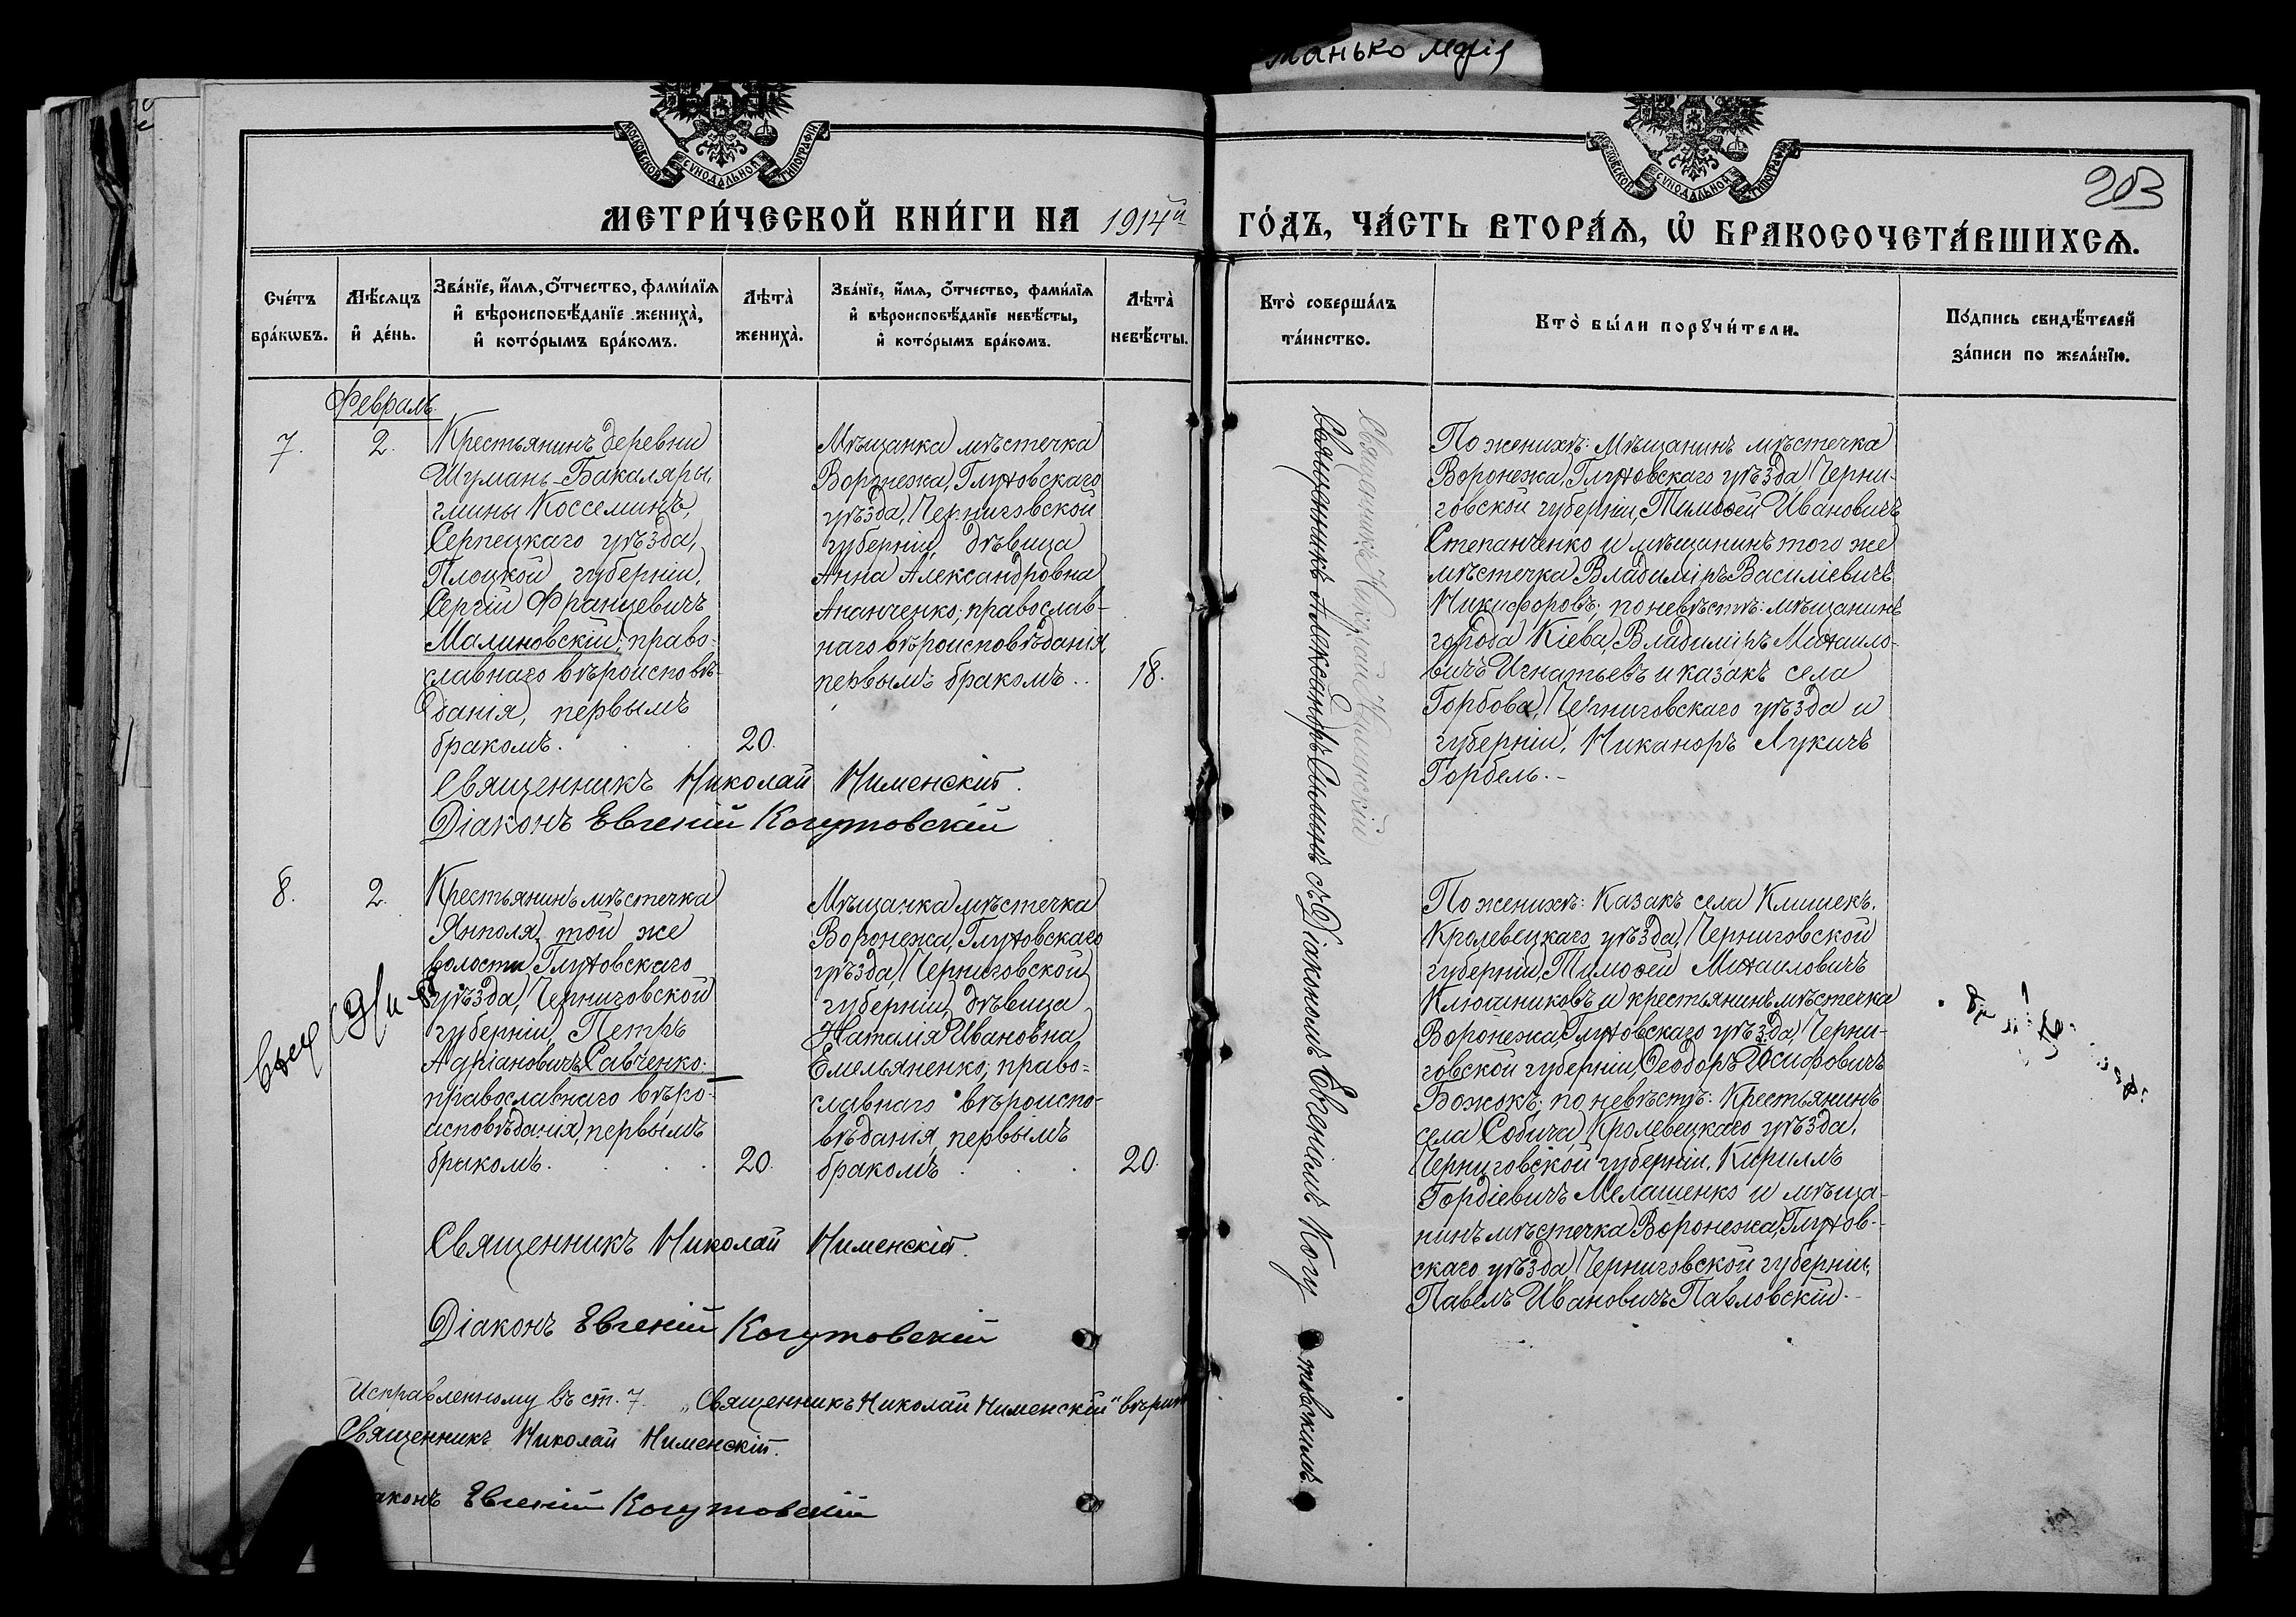 Манько Марія
МОСКОВСКОЙ СѴНОДАЛЬНОЙ ТИПОГРАФІИ
МОСКОВСКОЙ СѴНОДАЛЬНОЙ ТИПОГРАФІИ
203
МЕТРИ́ЧЕСКОЙ КНИ́ГИ НА 1914й ГО́ДЪ, ЧА́СТЬ ВТОРА́Ѧ, Ѽ БРАКОСОЧЕТА́ВШИХСѦ.
Сче́тъ
бра́кѡвъ.
Мѣ́сѧцъ
и҆ де́нь.
Зва́нїе, и҆́мѧ, ѻ҆́тчество, фами́лїѧ
и҆ вѣроисповѣ́данїе жениха̀,
и҆ кото́рымъ бра́комъ.
Лѣта̀
жениха̀.
Зва́нїе, и҆́мѧ, ѻ҆́тчество, фами́лїѧ
и҆ вѣроисповѣ́данїе невѣ́сты,
и҆ кото́рымъ бра́комъ.
Лѣта̀
невѣ́сты.
Кто̀ соверша́лъ
та́инство.
Кто̀ бы́ли порꙋчи́тели.
По́дпись свидѣ́телей
за́писи по жела́нїю.
Февраль.
7.
2.
Крестьянинъ деревни
Шумань-Бакаляры,
гмины Коссеминъ,
Серпецкаго уѣзда,
Плоцкой губерніи,
Сергій Францевичъ
Малиновскій; право-
славнаго вѣроисповѣ-
данія, первымъ
бракомъ.
20.
Мѣщанка мѣстечка
Воронежа, Глуховскаго
уѣзда, Черниговской
губерніи, дѣвица
Анна Александровна
Ананченко; православ-
наго вѣроисповѣданія,
первымъ бракомъ..
18.
Священникъ Николай Нименскій.
Діаконъ Евгеній Когутовскій
Священникъ Николай Нименскій
Священникъ Александръ Симинъ съ Діакономъ Евгеніемъ Когутовскимъ.
По женихѣ: мѣщанинъ мѣстечка
Воронежа, Глуховскаго уѣзда, Черни-
говской губерніи, Тимоѳей Ивановичъ
Степанченко и мѣщанинъ того же
мѣстечка Владиміръ Василіевичъ
Никифоровъ; по невѣстѣ: мѣщанинъ
города Кіева, Владиміръ Михаило-
вичъ Игнатьевъ и казакъ села
Горбова, Черниговскаго уѣзда и
губерніи, Никаноръ Лукичъ
Горбель.-
8.
2.
Крестьянинъ мѣстечка
Янполя, той же
волости Глуховскаго
уѣзда, Черниговской
губерніи, Петръ
Адріановичъ Савченко;
православнаго вѣро-
исповѣданія, первымъ
бракомъ.
20.
Мѣщанка мѣстечка
Воронежа, Глуховскаго
уѣзда, Черниговской
губерніи, дѣвица
Наталія Ивановна
Емельяненко; право-
славнаго вѣроиспо-
вѣданія, первымъ
бракомъ
20.
По женихѣ: Казакъ села Клишекъ,
Кролевецкаго уѣзда, Черниговской
губерніи, Тимоѳей Михаиловичъ
Ключниковъ и крестьянинъ мѣстечка
Воронежа, Глуховскаго уѣзда, Черни-
говской губерніи, Ѳеодоръ Іосифовичъ
Божокъ; по невѣстѣ: Крестьянинъ
села Собича, Кролевецкаго уѣзда,
Черниговской губерніи, Кириллъ
Гордіевичъ Мелашенко и мѣща-
нинъ мѣстечка Воронежа, Глухов-
скаго уѣзда, Черниговской губерніи,
Павелъ Ивановичъ Павловскій.-
Священникъ Николай Нименскій.
Діаконъ Евгеній Когутовскій
Исправленному въ ст. 7. „Священникъ Николай Нименскій" вѣрить
Священникъ Николай Нименскій.
аконъ Евгеній Когутовскій